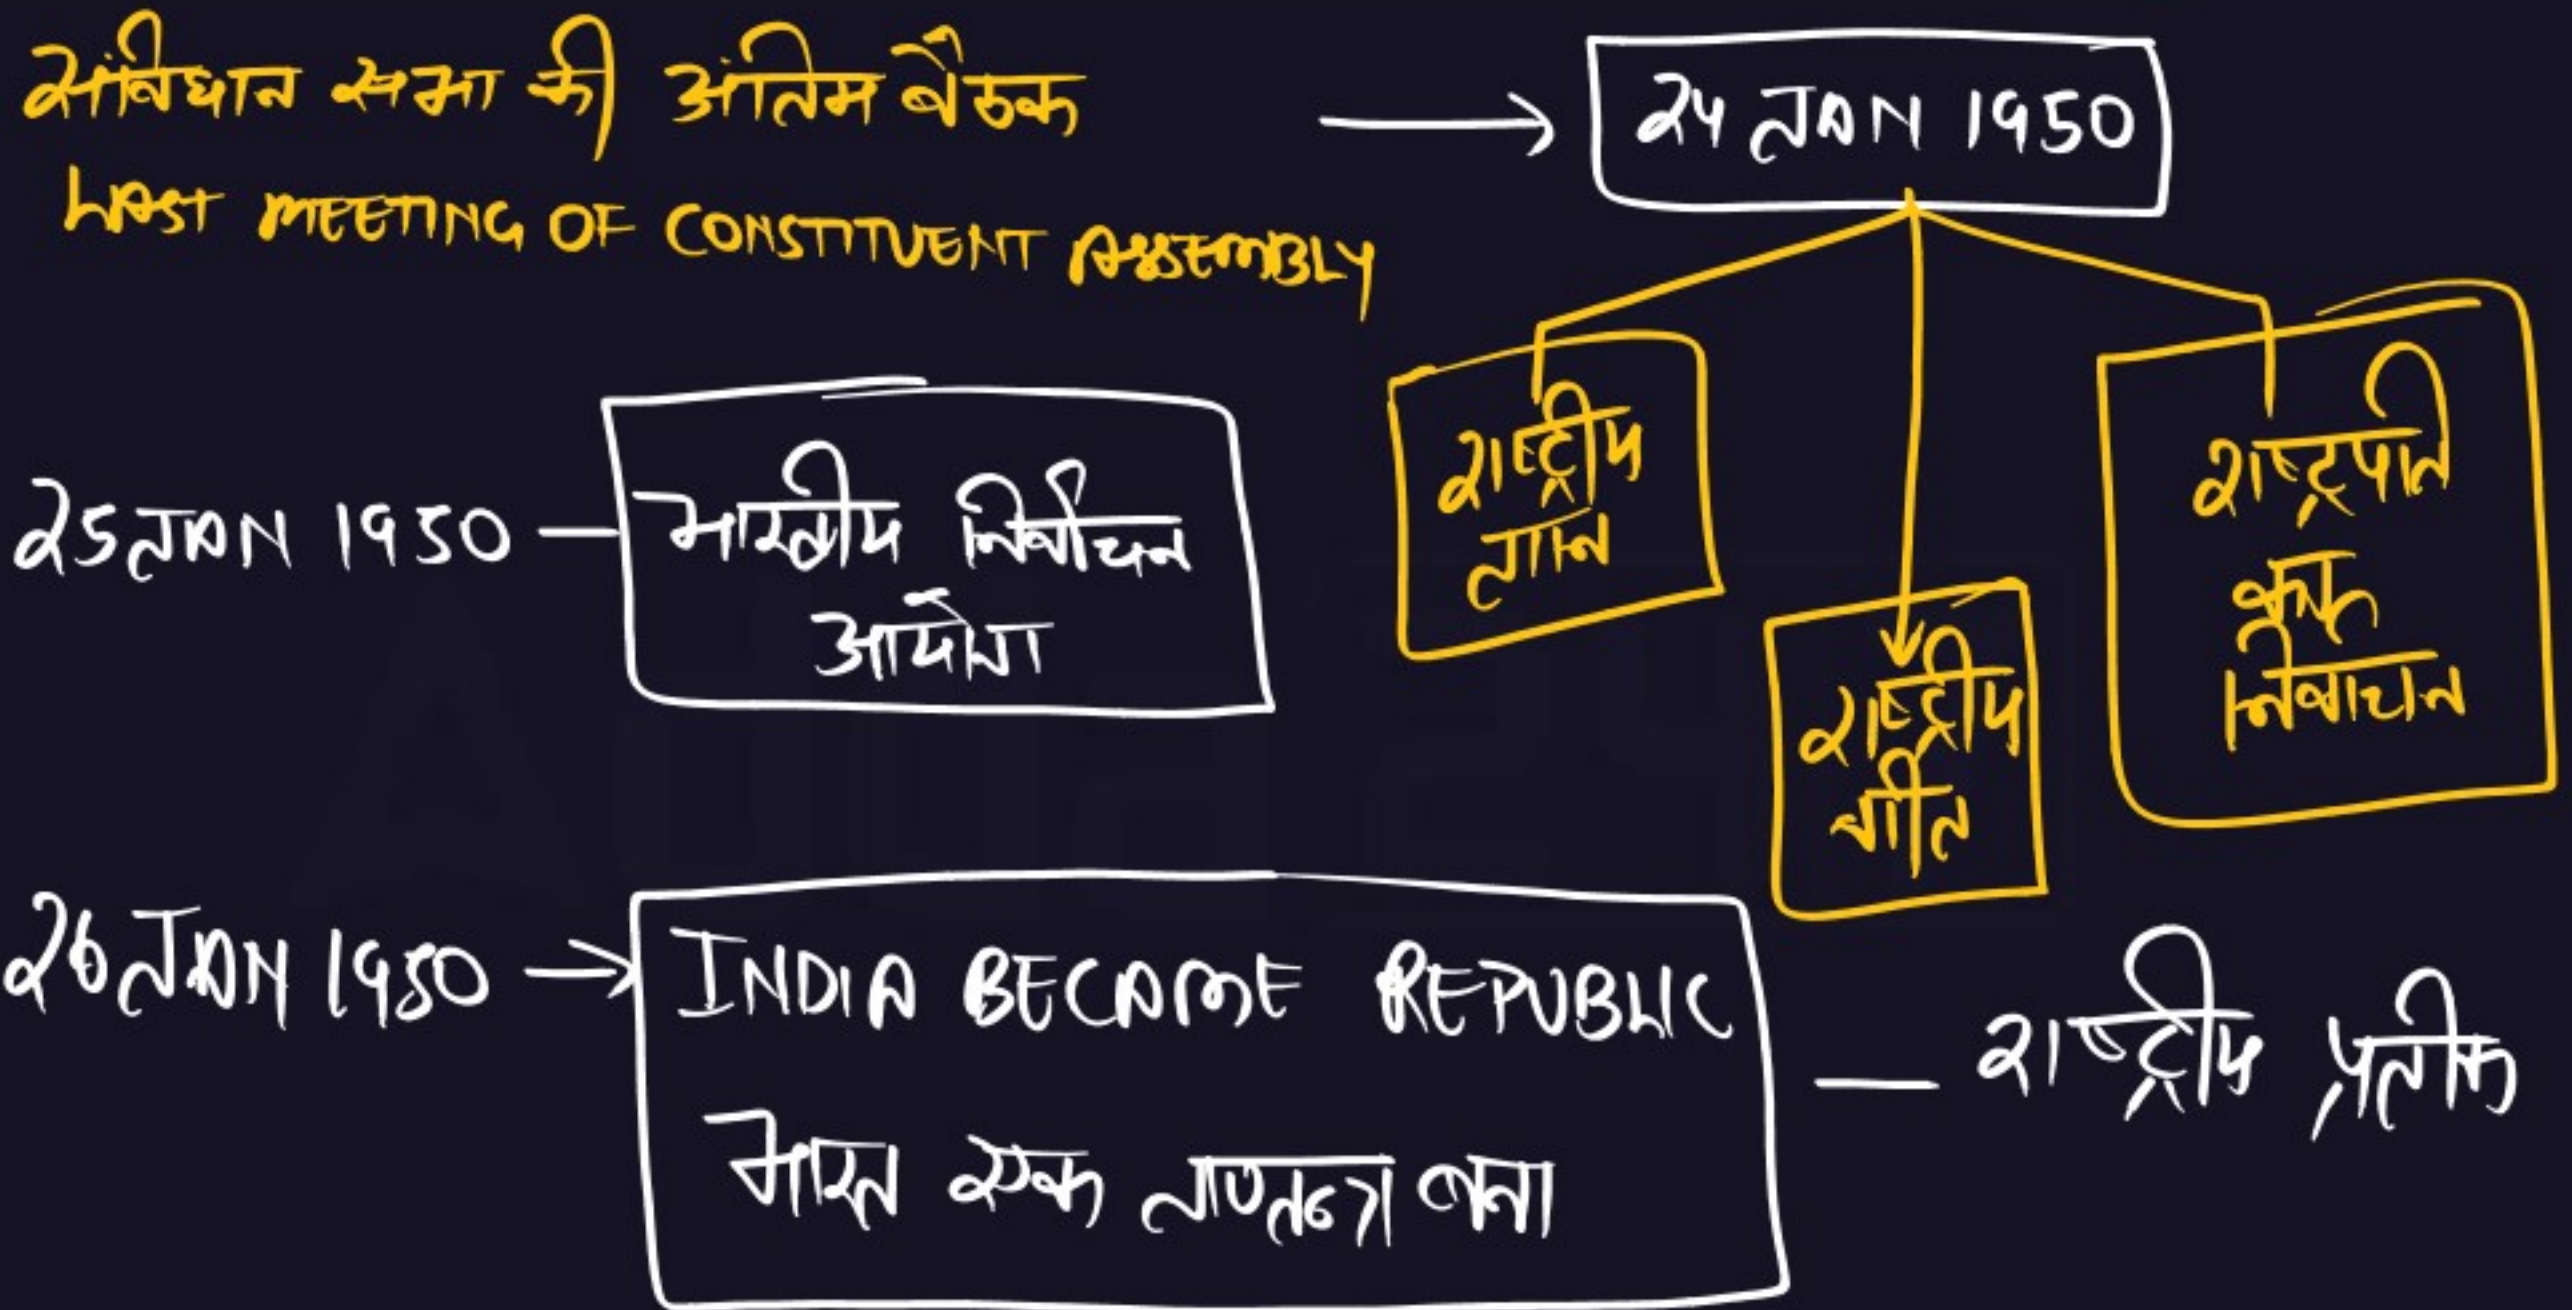 संविधान सभा की अंतिम बैठक
LAST MEETING OF CONSTITUENT ASSEMBLY
24 JAN 1950
राष्ट्रीय
गान
राष्ट्रीय
गीत
राष्ट्रपति
का
निर्वाचन
25 JAN 1950 - भारतीय निर्वाचन
आयोग
26 JAN 1950 → INDIA BECAME REPUBLIC
भारत एक गणतन्त्र बना
- राष्ट्रीय प्रतीक